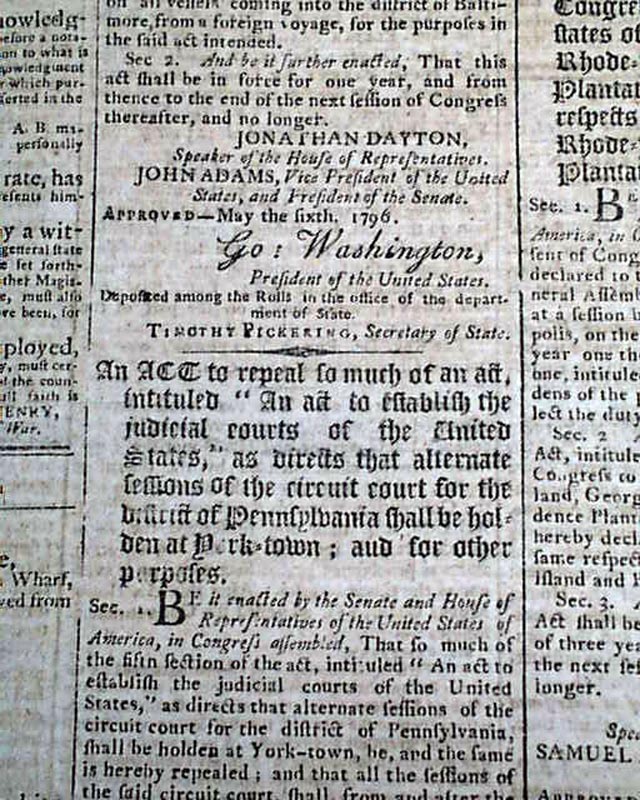 on all vessels coming into the district of Balti-
more, from a foreign voyage, for the purposes in
the said act intended.
Sec 2. And be it further enacted, That this
act shall be in force for one year, and from
thence to the end of the next session of Congress
thereafter, and no longer.
JONATHAN DAYTON,
Speaker of the House of Representatives.
JOHN ADAMS, Vice President of the United
States, and President of the Senate.
APPROVED—May the sixth, 1796.
Go: Washington,
President of the United States.
Deposited among the Rolls in the office of the depart-
ment of State.
TIMOTHY PICKERING, Secretary of State.
An ACT to repeal so much of an act,
intituled " An act to establish the
judicial courts of the United
States," as directs that alternate
sessions of the circuit court for the
district of Pennsylvania shall be hol-
den at York-town; and for other
purposes.
Sec. 1. BE it enacted by the Senate and House of
Representatives of the United States of
America, in Congress assembled, That so much of
the fifth section of the act, intituled " An act to
establish the judicial courts of the United
States," as directs that alternate sessions of the
circuit court for the district of Pennsylvania,
shall be holden at York-town, be, and the same
is hereby repealed; and that all the sessions of
the said circuit court, shall, from and after the
nowledg-
before a nota-
on to what is
nowledgment
which pur-
serted in the
A. B. ma-
personally
rate, has
esents him-
y a wit-
general state
set forth-
ther Magis-
e, must also
ve been, for
ployed,
y, must cer-
the coun-
full faith is
HENRY,
War.
Wharf,
ved from
Congre
states of
Rhode-
Plantat
respects
Rhode-
Planta
Sec. 1. B
America, in C
sent of Cong
declared to
neral Assemb
at a session
polis, on the
year one th
one, intitule
dens of the p
lect the duty
Sec. 2
Act, intitule
Congress to
land, Georg
dence Plan
hereby decl
same respec
Island and
Sec. 3.
Act shall be
of three yea
the next ses
longer.
Spea
SAMUEL